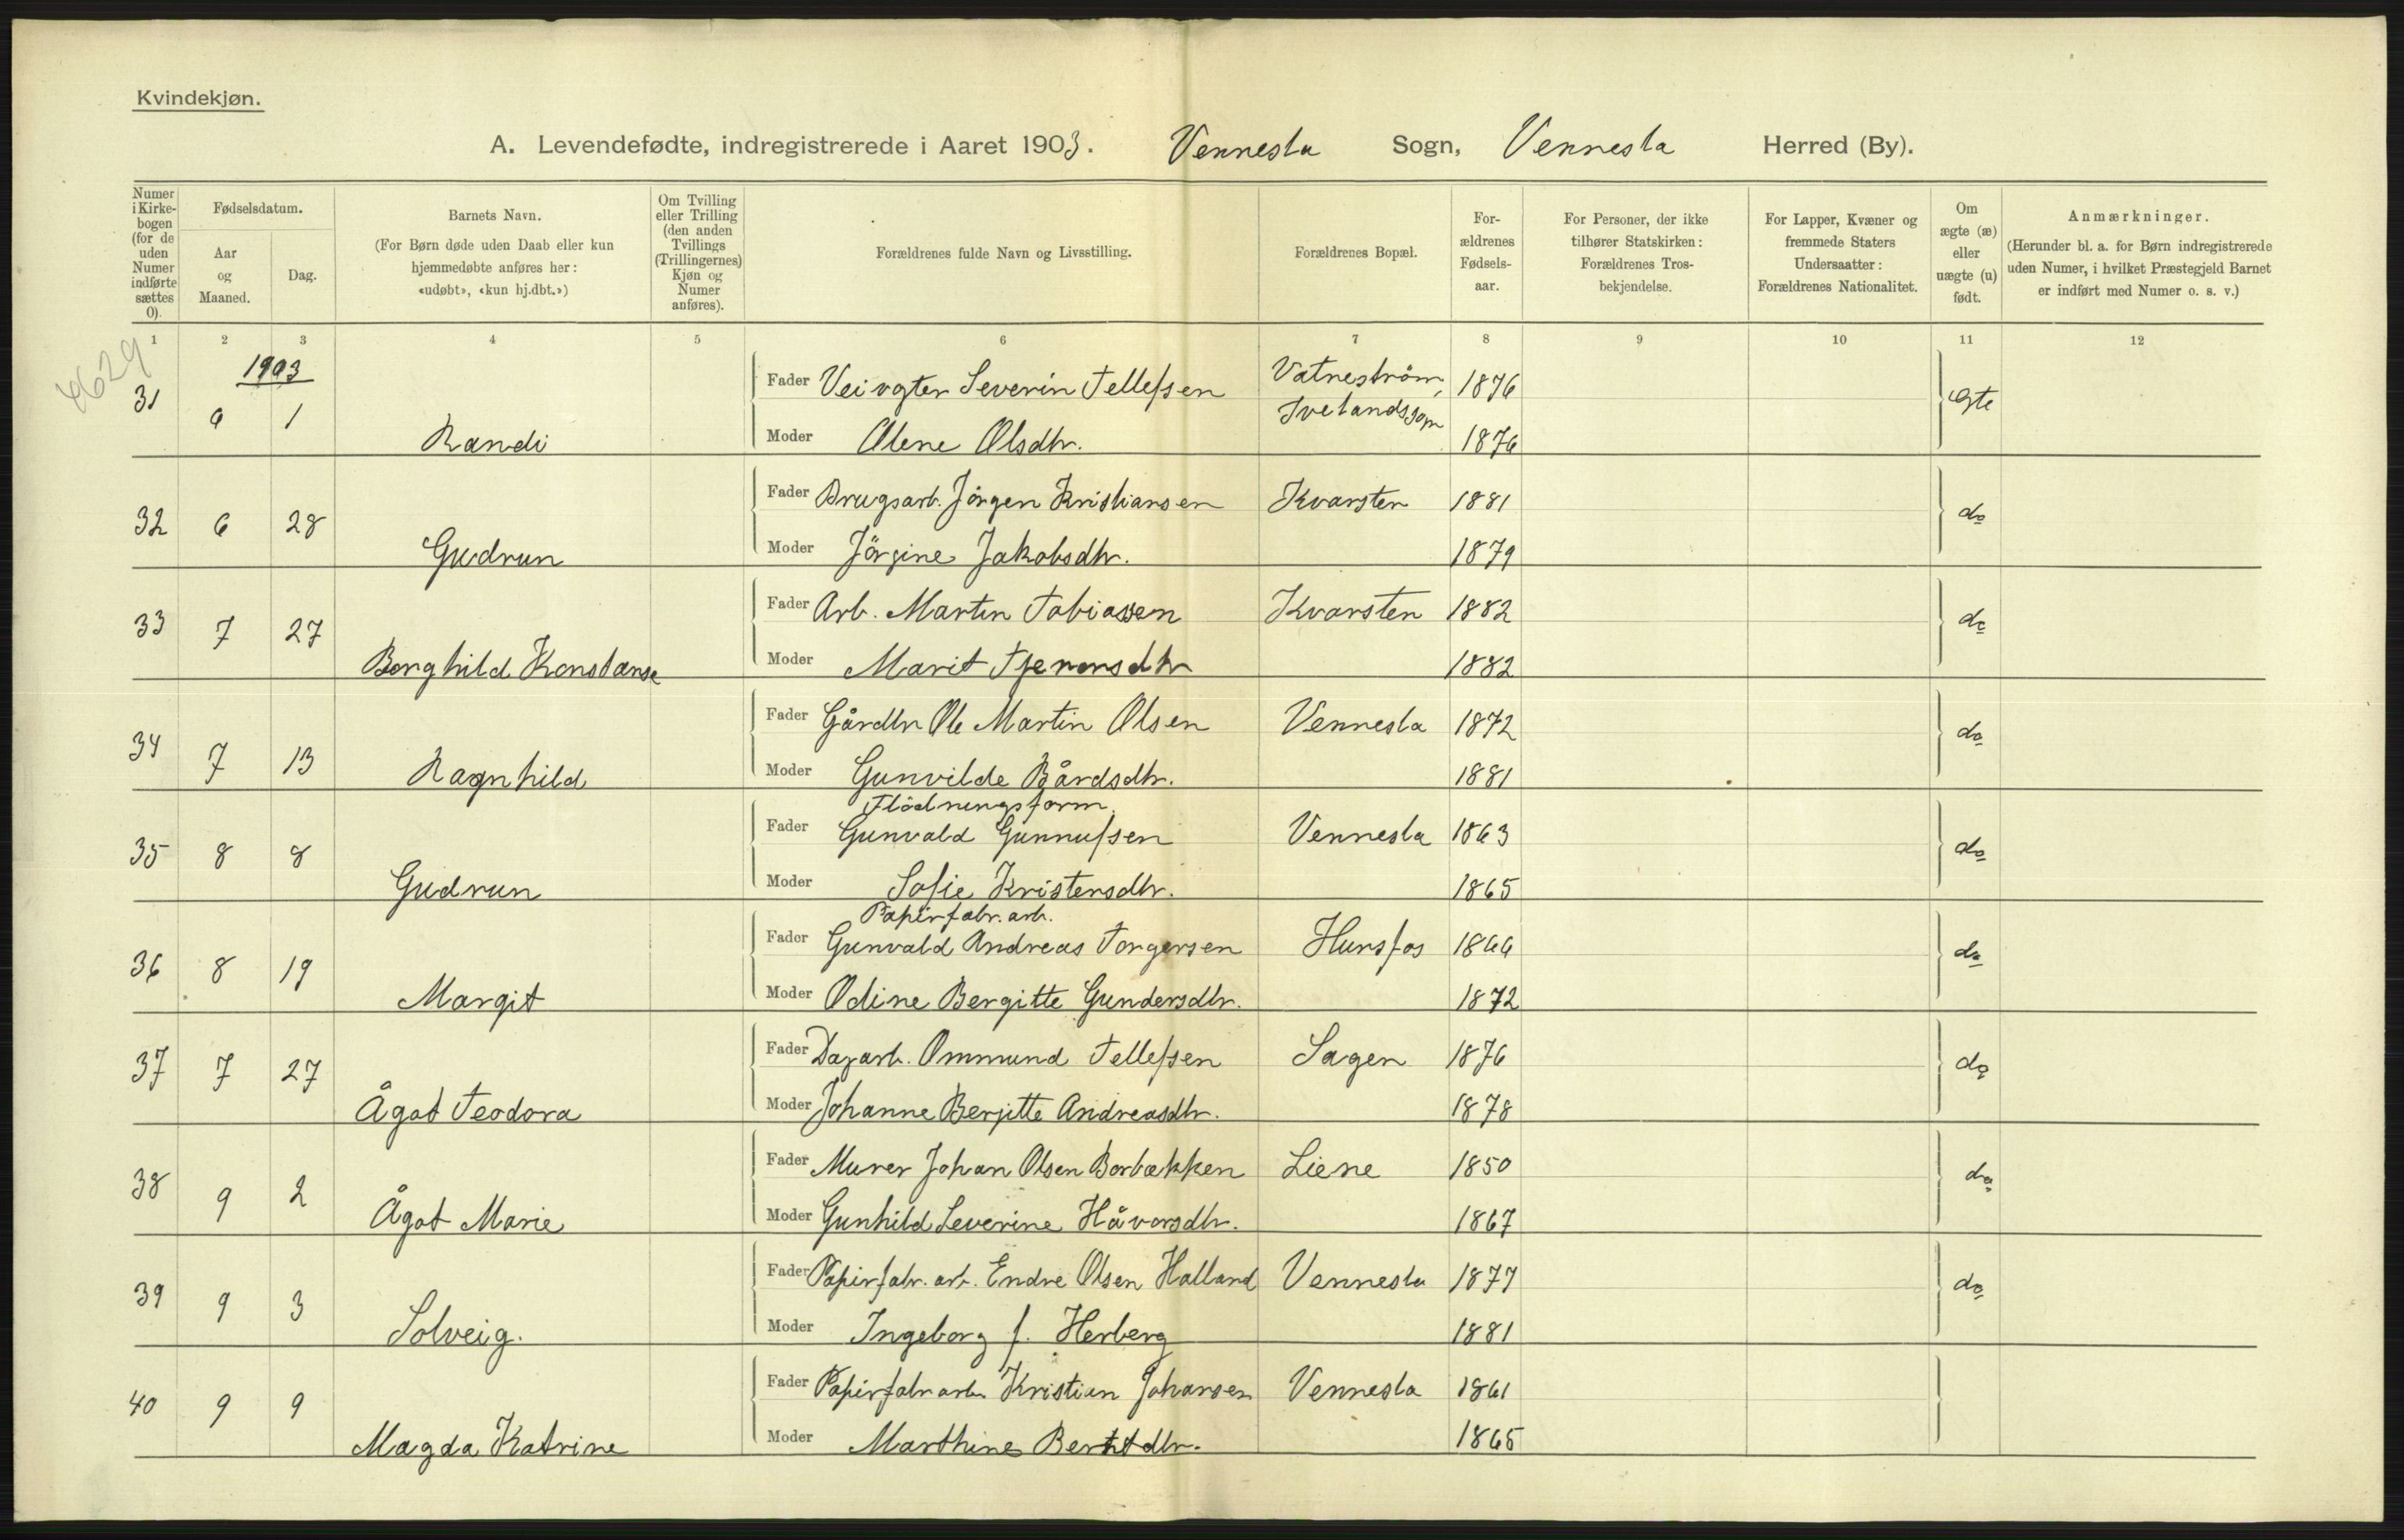 Kvindekjøn.
A. Levendefødte, indregistrerede i Aaret 1903. Vennesla Sogn, Vennesla Herred (By).
Numer i Kirkebogen (for de uden Numer indførte sættes 0).
Fødselsdatum.
Aar og Maaned.
Dag.
Barnets Navn.
(For Børn døde uden Daab eller kun hjemmedøbte anføres her: «udøbt», «kun hj.dbt.»)
Om Tvilling eller Trilling (den anden Tvillings (Trillingernes) Kjøn og Numer anføres).
Forældrenes fulde Navn og Livsstilling.
Forældrenes Bopæl.
Forældrenes Fødselsaar.
For Personer, der ikke tilhører Statskirken: Forældrenes Trosbekjendelse.
For Lapper, Kvæner og fremmede Staters Undersaatter: Forældrenes Nationalitet.
Om ægte (æ) eller uægte (u) født.
Anmærkninger.
(Herunder bl. a. for Børn indregistrerede uden Numer, i hvilket Præstegjeld Barnet er indført med Numer o. s. v.)
1 2 3 4 5 6 7 8 9 10 11 12
4629
1903
31 9 1 Randi Fader Veivogter Severin Tellefsen Vatneström, Ivelandssogn 1876 Egte
Moder Olene Olsdtr. 1876
32 6 28 Gudrun Fader Brugsarb. Jörgen Kristiansen Kvarsten 1881 do
Moder Jörgine Jakobsdtr. 1879
33 7 27 Borghild Konstanse Fader Arb. Martin Tobiassen Kvarsten 1882 do
Moder Marit 1882
34 7 13 Ragnhild Fader Gårdbr Ole Martin Olsen Vennesla 1872 do
Moder Gunvilde Bårdsdtr. 1881
Flödningsform.
35 8 8 Gudrun Fader Gunvald Gunnufsen Vennesla 1863 do
Moder Sofie Kristensdtr. 1865
Papirfabr. arb.
36 8 19 Margit Fader Gunvald Andreas Torgersen Hunsfos 1866 do
Moder Odine Bergitte Gundersdtr. 1872
37 7 27 Ågot Teodora Fader Dagarb. Ommund Tellefsen Sagen 1876 do
Moder Johanne Bergitte Andreasdtr. 1878
38 9 2 Ågot Marie Fader Murer Johan Olsen Borbækken Liene 1850 do
Moder Gunhild Severine Håvorsdtr. 1867
39 9 3 Solveig. Fader Papirfabr. arb. Endre Olsen Halland Vennesla 1877 do
Moder Ingeborg f. Herberg 1881
40 9 9 Magda Katrine Fader Papirfabr arb. Kristian Johansen Vennesla 1861
Moder Marthine Berntdtr. 1865